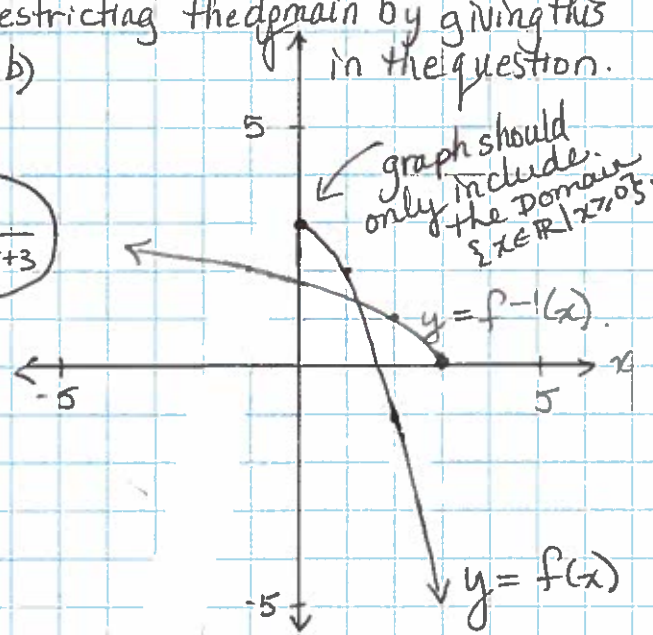 estricting the domain by giving this
b) in the question.
5
graph should
only include
the Domain
{x∈ℝ|x≥0}.
+3
y = f⁻¹(x).
-5
5
x
y = f(x)
-5